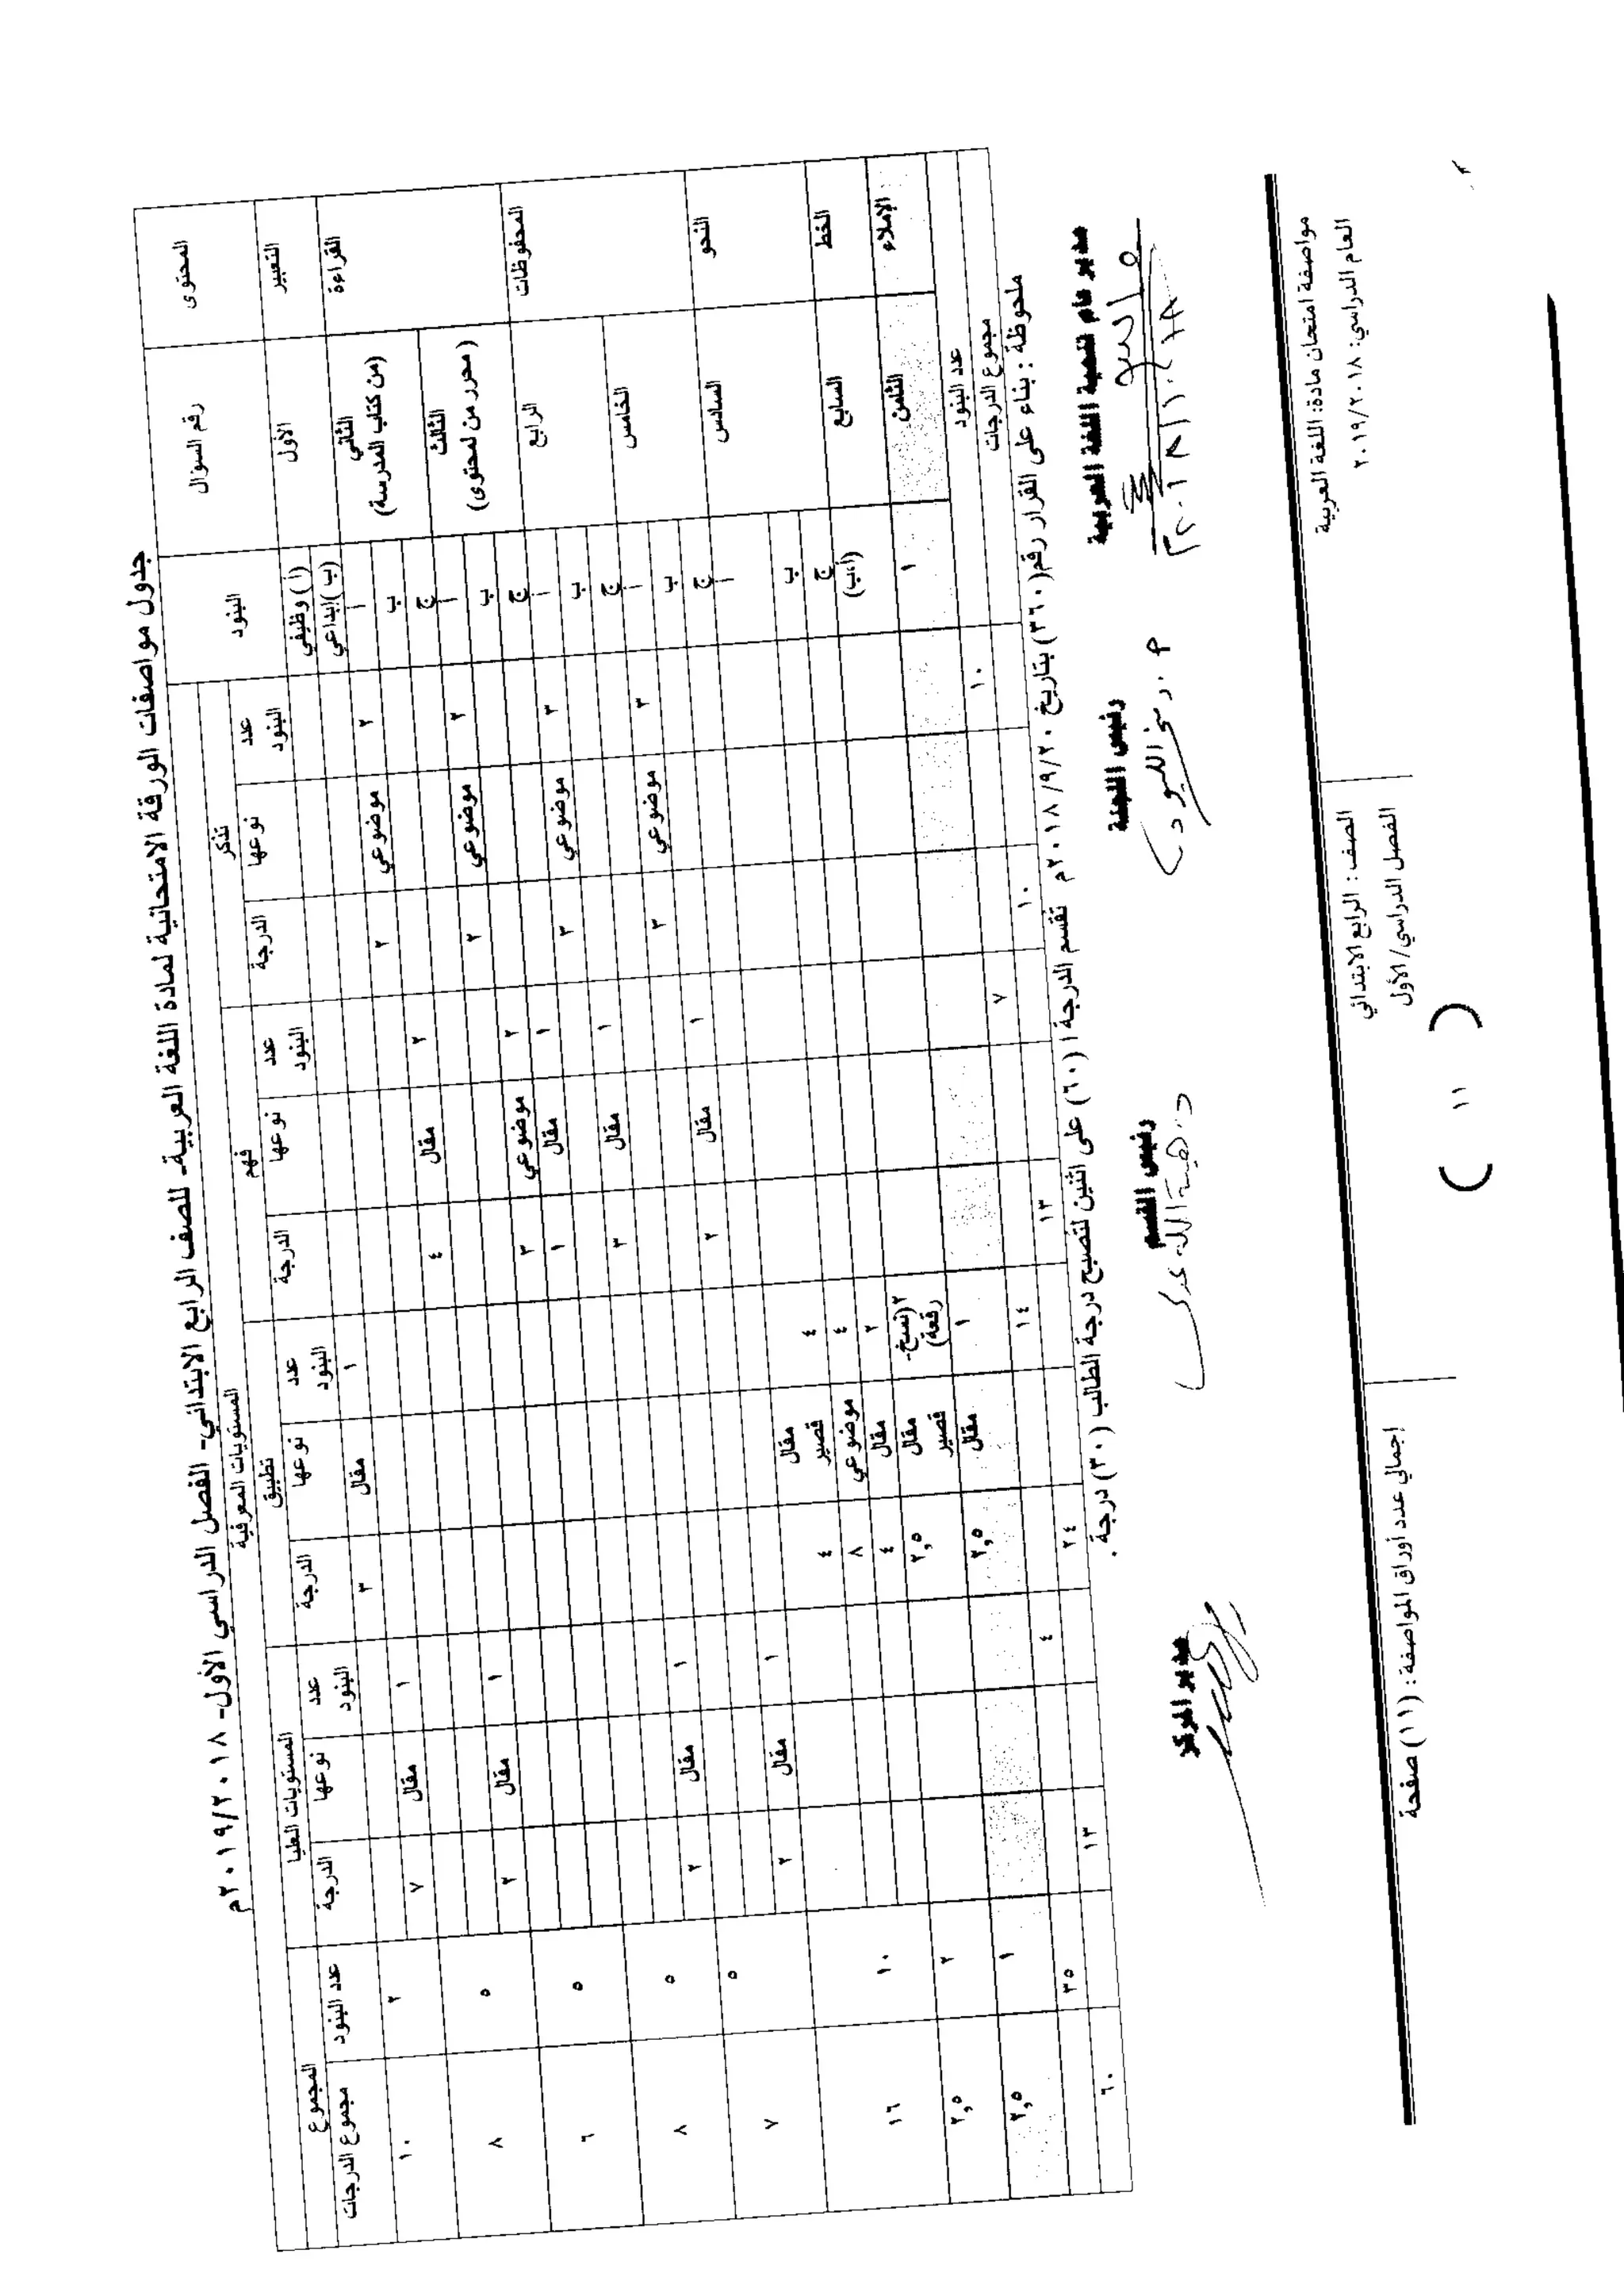 جدول مواصفات الورقة الامتحانية لمادة اللغة العربية- للصف الرابع الابتدائي- الفصل الدراسي الأول- ٢٠١٩/٢٠١٨م
المحتوى رقم السؤال البنود المستويات المعرفية المجموع
تذكر فهم تطبيق المستويات العليا
عدد البنود نوعها الدرجة عدد البنود نوعها الدرجة عدد البنود نوعها الدرجة عدد البنود نوعها الدرجة عدد البنود مجموع الدرجات
التعبير الأول (أ) وظيفي ١ مقال ٣ ٢ ١٠
(ب) إبداعي ١ مقال ٧
القراءة الثاني (من كتاب المدرسة) أ ٢ موضوعي ٢ ٥ ٨
ب ٢ مقال ٤
ج ١ مقال ٢
الثالث (محرر من لمحتوى) أ ٢ موضوعي ٢ ٥ ٦
ب ٢ موضوعي ٣
ج ١ مقال ١
المحفوظات الرابع أ ٣ موضوعي ٣ ٥ ٨
ب ١ مقال ٣
ج ١ مقال ٢
الخامس أ ٣ موضوعي ٣ ٥ ٧
ب ١ مقال ٢
ج ١ مقال ٢
النحو السادس أ ٤ مقال قصير ٤ ١٠ ١٦
ب ٤ موضوعي ٨
ج ٢ مقال ٤
الخط السابع (أ،ب) ٢ (نسخ- رقعة) مقال قصير ٢,٥ ٢ ٢,٥
الإملاء الثامن ١ ١ مقال ٢,٥ ١ ٢,٥
عدد البنود ١٠ ٧ ١٤ ٤ ٣٥
مجموع الدرجات ١٠ ١٣ ٢٤ ١٣ ٦٠
ملحوظة : بناء على القرار رقم(٣٦٠) بتاريخ ٢٠١٨/٩/٢٠م تقسم الدرجة ا (٦٠) على اثنين لتصبح درجة الطالب (٣٠) درجة .
مدير عام تنمية اللغة العربية رئيس اللجنة رئيس القسم مدير المركز
مواصفة امتحان مادة: اللغة العربية الصف : الرابع الابتدائي إجمالي عدد أوراق المواصفة : (١١) صفحة
العام الدراسي: ٢٠١٩/٢٠١٨ الفصل الدراسي/ الأول
( ١١ )